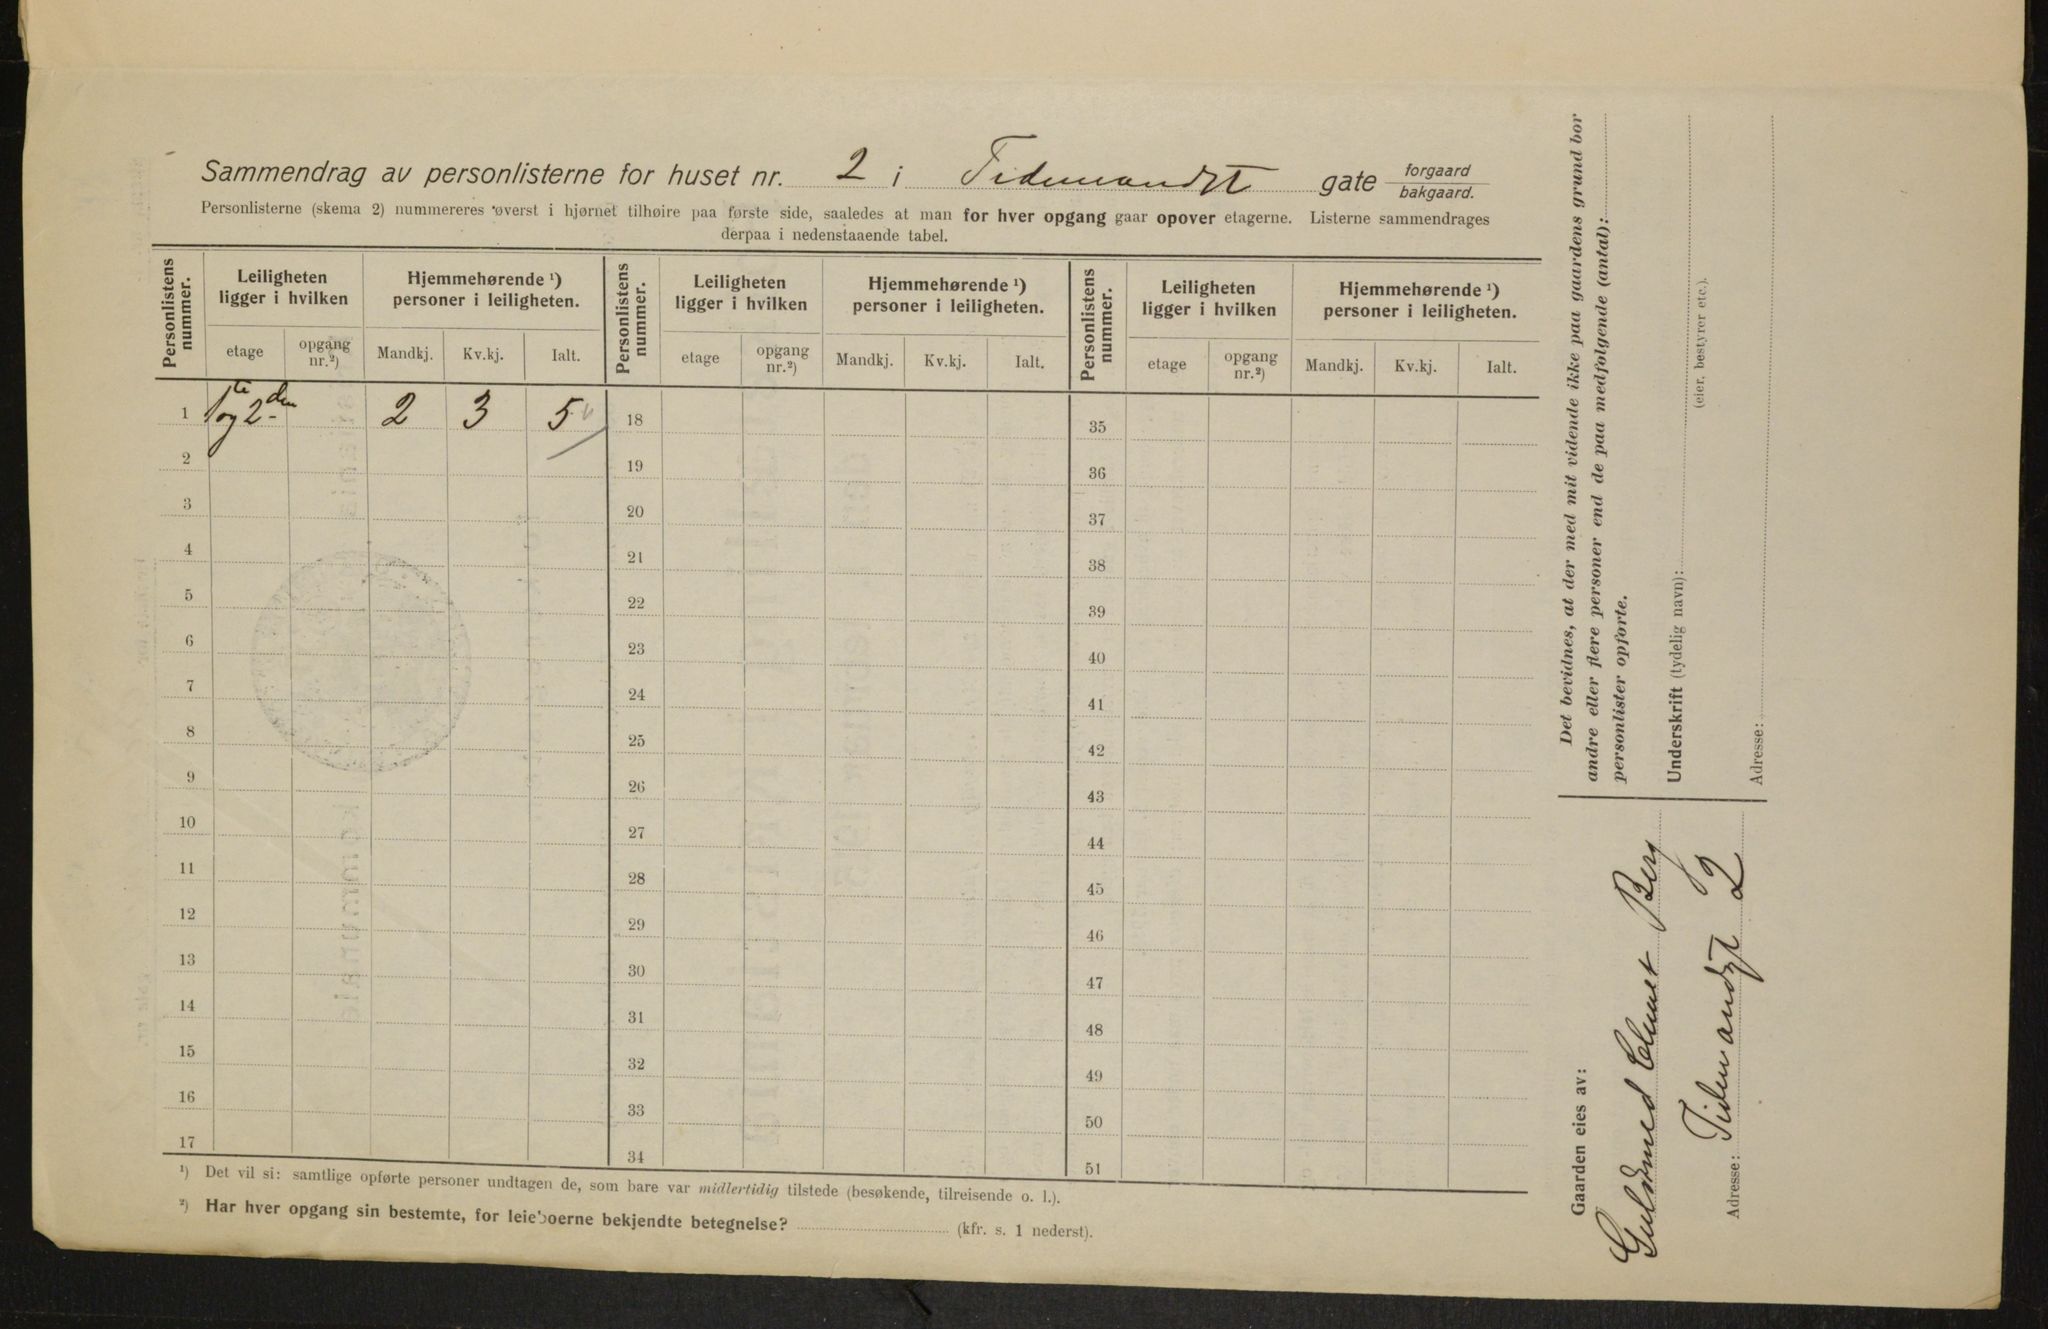 Sammendrag av personlisterne for huset nr. 2 i Tidemandsgt gate forgaard bakgaard.
Personlisterne (skema 2) nummereres øverst i hjørnet tilhøire paa første side, saaledes at man for hver opgang gaar opover etagerne. Listerne sammendrages
derpaa i nedenstaaende tabel.
Personlistens nummer. Leiligheten ligger i hvilken Hjemmehørende ¹) personer i leiligheten. Personlistens nummer. Leiligheten ligger i hvilken Hjemmehørende ¹) personer i leiligheten. Personlistens nummer. Leiligheten ligger i hvilken Hjemmehørende ¹) personer i leiligheten.
etage opgang nr.²) Mandkj. Kv.kj. Ialt. etage opgang nr.²) Mandkj. Kv.kj. Ialt. etage opgang nr.²) Mandkj. Kv.kj. Ialt.
1 1ste og 2den 2 3 5 18 35
2 19 36
3 20 37
4 21 38
5 22 39
6 23 40
7 24 41
8 25 42
9 26 43
10 27 44
11 28 45
12 29 46
13 30 47
14 31 48
15 32 49
16 33 50
17 34 51
¹) Det vil si: samtlige opførte personer undtagen de, som bare var midlertidig tilstede (besøkende, tilreisende o. l.).
²) Har hver opgang sin bestemte, for leieboerne bekjendte betegnelse? (kfr. s. 1 nederst).
Det bevidnes, at der med mit vidende ikke paa gaardens grund bor
andre eller flere personer end de paa medfølgende (antal):
personlister opførte.
Underskrift (tydelig navn):
(eier, bestyrer etc.).
Adresse:
Gaarden eies av:
Berg
Adresse: Tidemandsgt 2